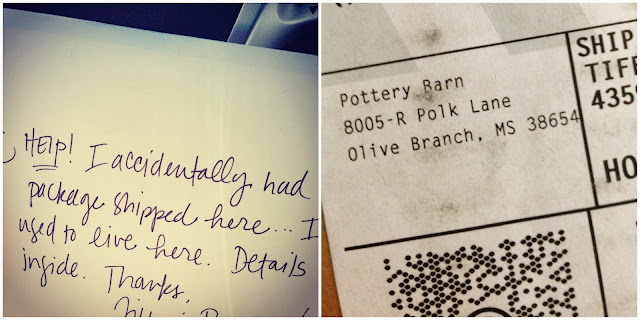 HELP! I accidentally had
package shipped here... I
used to live here. Details
inside. Thanks,
Pottery Barn
8005-R Polk Lane
Olive Branch, MS 38654
SHIP
TIFF
435
HO